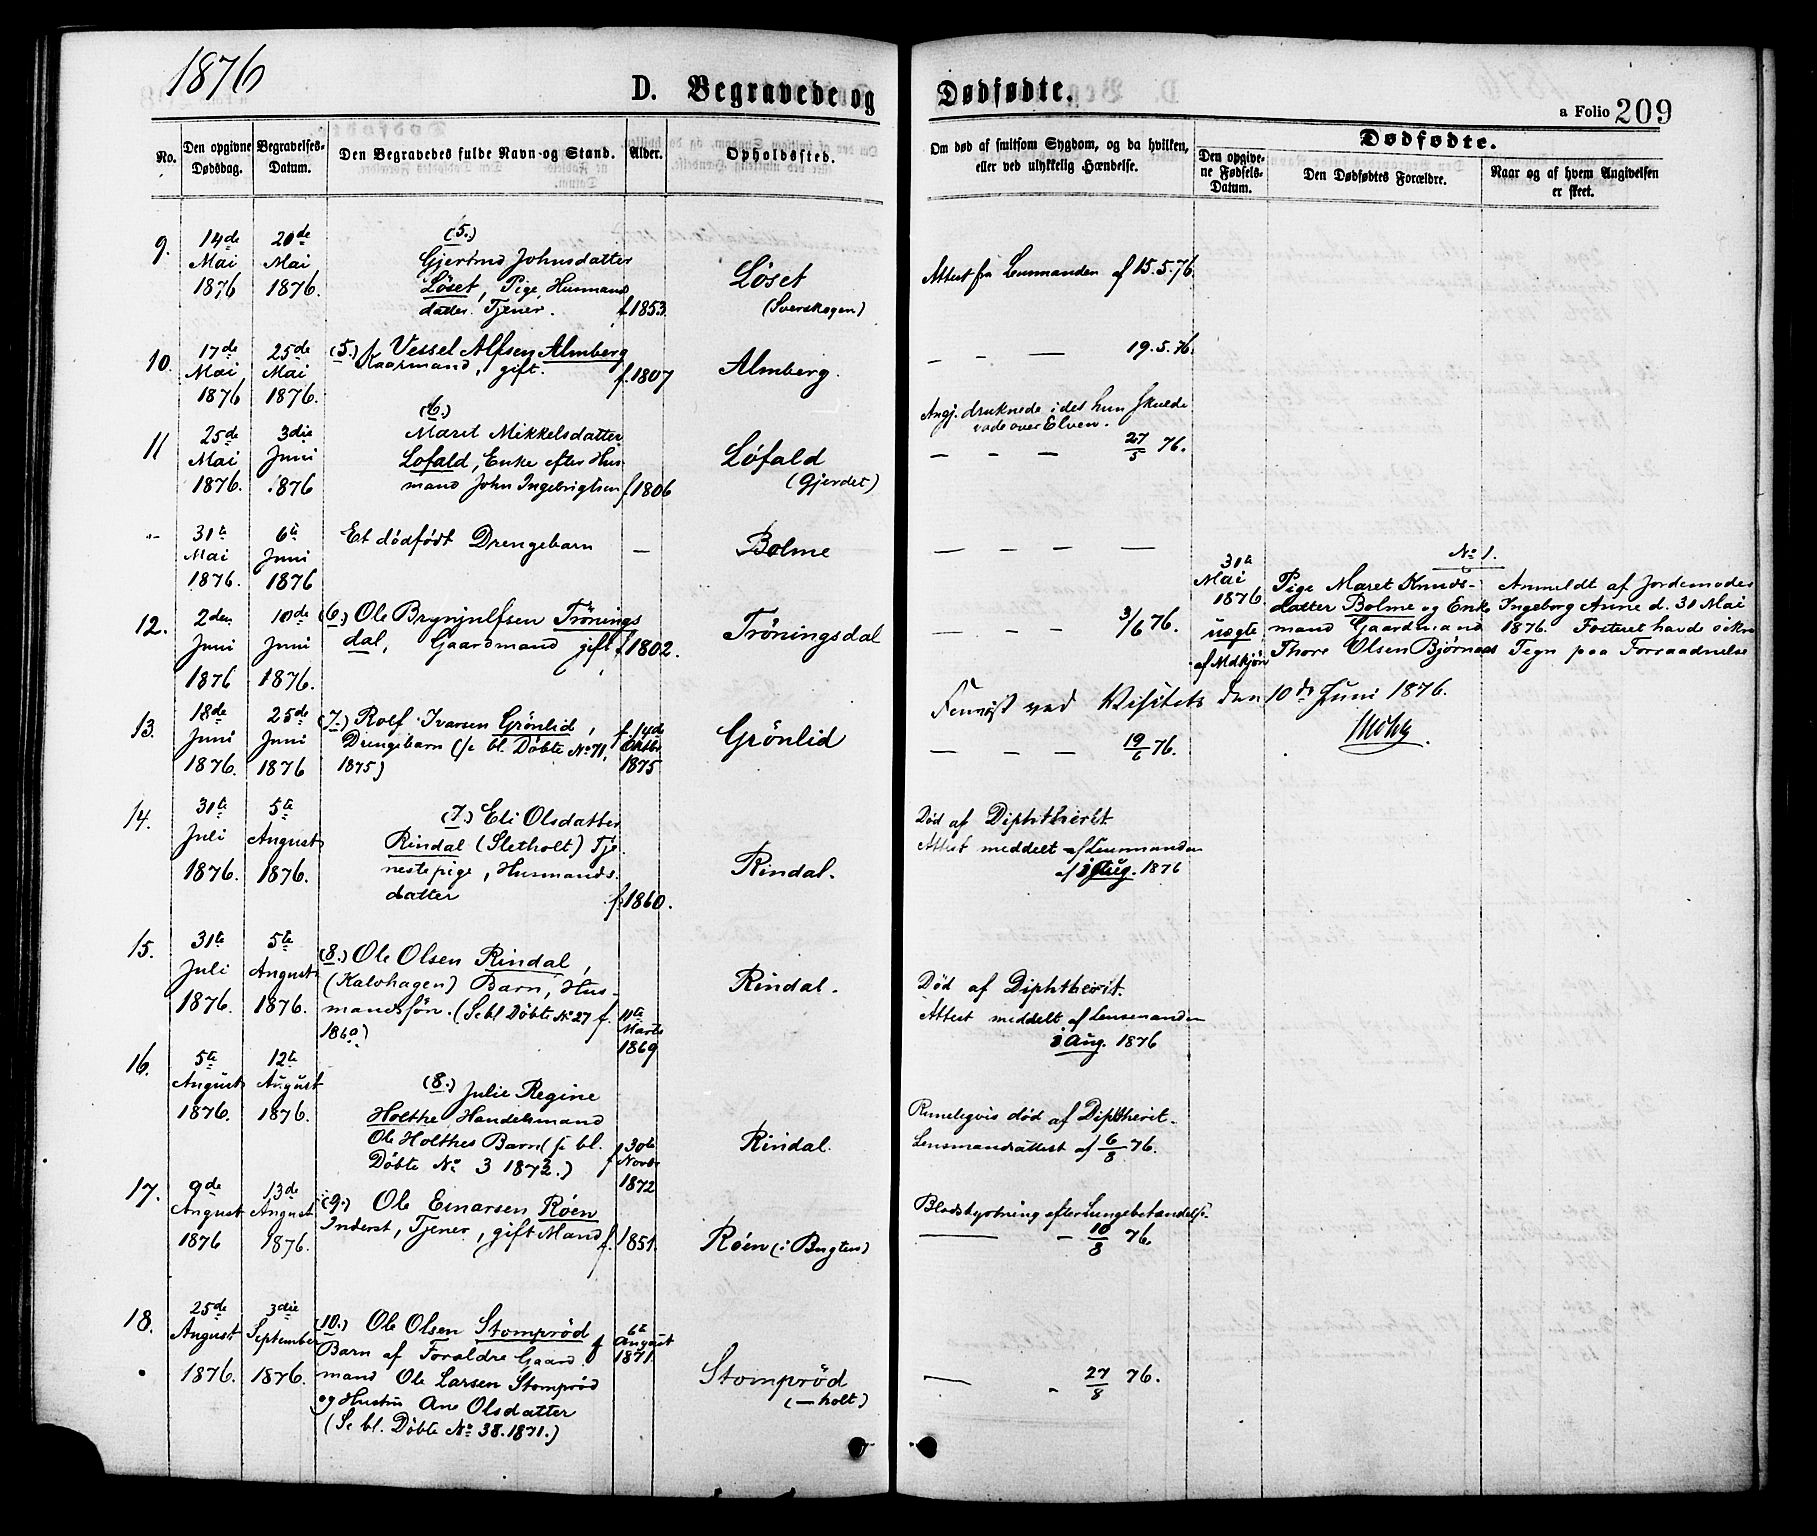 1876
D. Begravede og Dødfødte.
a Folio 209
No.
Den opgivne Dødsdag.
Begravelses-Datum.
Den Begravedes fulde Navn og Stand.
Alder.
Opholdssted.
Om død af smitsom Sygdom, og da hvilken,
eller ved ulykkelig Hændelse.
Dødfødte.
Den opgivne Fødsels-Datum.
Den Dødfødtes Forældre.
Naar og af hvem Angivelsen er skeet.
9. 14de Mai 1876 20de Mai 1876.
(5.)
Gjertrud Johnsdatter
Løset, Pige, Husmands
datter. Tjener. f. 1853.
Løset
(Sverskogen)
Attest fra Lensmanden af 15.5.76.
10. 17de Mai 1876 25de Mai 1876.
(5.) Vessel Alfsen Almberg
Kaarmand, gift. f. 1807
Almberg.
— — — 19.5.76.
11 25de Mai 1876. 3die Juni 1876
(6.)
Maret Mikkelsdatter
Løfald, Enke efter Hus-
mand John Ingebrigtsen f. 1806
Løfald
(Gjerdet)
Angj. druknede, ides hun skulde
vade over Elven.
— — — 27/5 76.
" 31te Mai 1876. 6te Juni 1876
Et dødfødt Drengebarn —
Bolme
— — — —
31te Mai 1876
uægte
af Mdkjøn
No 1.
Pige Maret Knuds-
datter Bolme og Enke
mand Gaardmand
Thore Olsen Bjørnaas
Anmeldt af Jordemoder
Ingeborg Anne d. 31 Mai
1876. Fosteret havde sikre
Tegn paa Forraadnelse
12. 2den Juni 1876 10de Juni 1876.
(6.) Ole Brynjulfsen Trönings
dal, Gaardmand gift f. 1802.
Tröningsdal
— — — 3/6 76.
ved Visitats den 10de Juni 1876.
13. 18de Juni 1876. 25de Juni 1876
(7.) Rolf Ivarsen Grönlid,
Drengebarn (se bl. Døbte No 71,
1875)
f. 14de Oktbr 1875
Grönlid
— — — 19/6 76.
14. 31te Juli 1876. 5te August 1876.
(7.) Eli Olsdatter
Rindal (Sletholt) Tje
nestepige, Husmands
datter f. 1860.
Rindal.
Død af Diphtherit
Attest meddelt af Lensmanden
af 1 Aug. 1876
15. 31te Juli 1876. 5te August 1876.
(8.) Ole Olsen Rindal,
(Kalvhagen) Barn, Hus-
mandssøn. (Se bl Døbte No 27
1869)
f. 11te Marts 1869
Rindal.
Død af Diphtherit.
Attest meddelt af Lensmanden
i Aug. 1876
16. 5te August 1876. 12te August 1876.
(8.) Julie Regine
Holthe, Handelsmand
Ole Holthes Barn (se bl.
Døbte No 3 1873.)
f. 30te Novbr 1872
Rindal.
Rimeligvis død af Diphtherit.
Lensmandsattest af 6/8 76.
17. 9de August 1876 13de August 1876.
(9.) Ole Einarsen Røen
Inderst, Tjener, gift Mand f. 1851.
Røen (i Bugten)
Blodstyrtning efter Lungebetændelse.
— — 10/8 76.
18. 25de August 1876. 3die September 1876.
(10.) Ole Olsen Stomprød
Barn af Forældre Gaard
mand Ole Larsen Stomprød
og Hustru Ane Olsdatter
(Se bl. Døbte No 38. 1871.)
f 6te August 1871
Stomprød
(—holt)
— — 27/8 76.